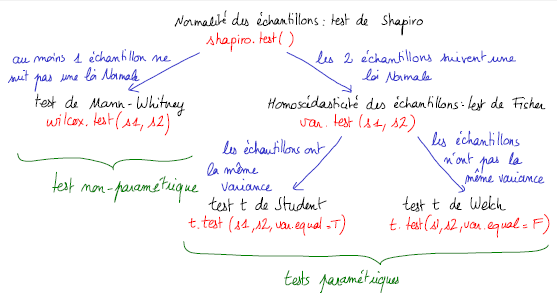 Normalité des échantillons : test de Shapiro
shapiro.test()
au moins 1 échantillon ne
suit pas une loi Normale
les 2 échantillons suivent une
loi Normale
test de Mann-Whitney
wilcox.test(s1, s2)
Homoscédasticité des échantillons : test de Fisher
var.test(s1, s2)
test non-paramétrique
les échantillons ont
la même
variance
les échantillons
n'ont pas la
même variance
test t de Student
t.test(s1, s2, var.equal=T)
test t de Welch
t.test(s1, s2, var.equal=F)
tests paramétriques